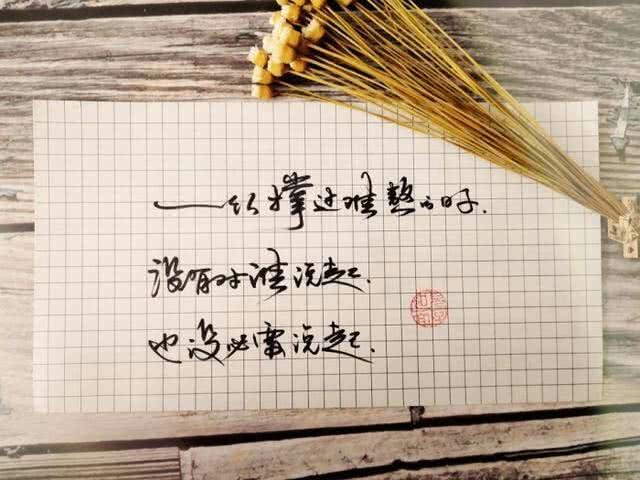 一个人撑过难熬的日子.
没有对谁说起.
也没必要说起.